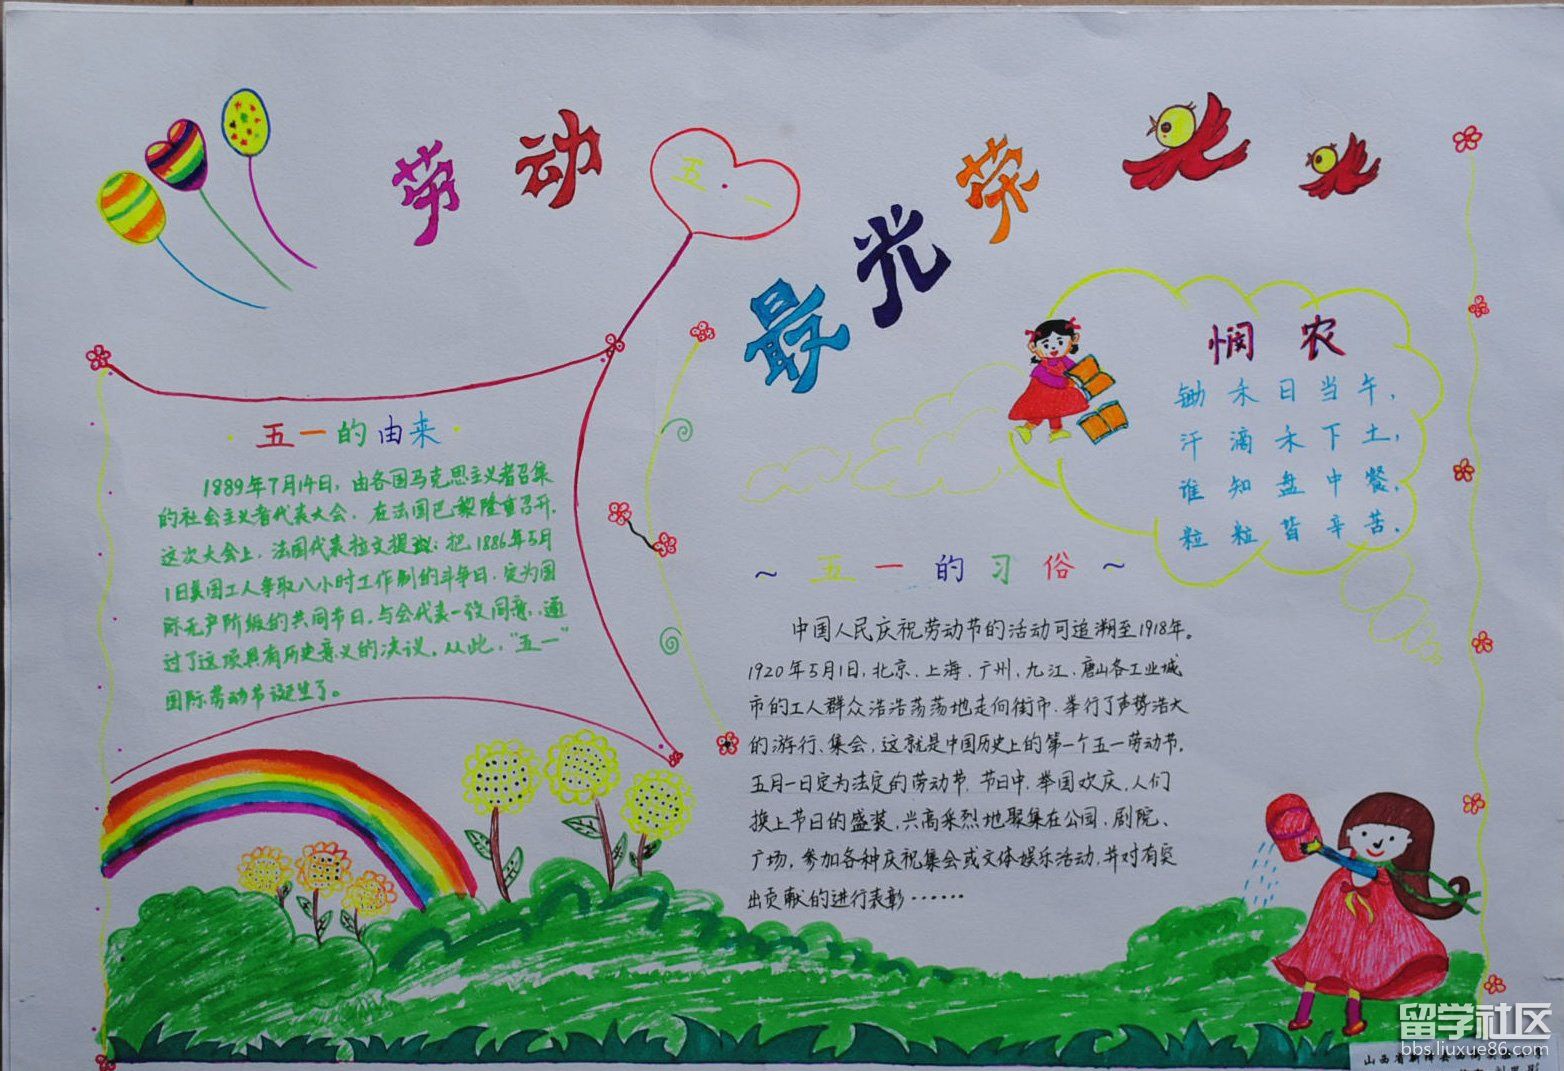 劳动
五·一
最光荣
五一的由来
1889年7月14日，由各国马克思主义者召集
的社会主义者代表大会，在法国巴黎隆重召开。
这次大会上，法国代表拉文提议：把1886年5月
1日美国工人争取八小时工作制的斗争日，定为国
际无产阶级的共同节日，与会代表一致同意，通
过了这项具有历史意义的决议。从此，“五一”
国际劳动节诞生了。
悯农
锄禾日当午，
汗滴禾下土，
谁知盘中餐，
粒粒皆辛苦。
~五一的习俗~
中国人民庆祝劳动节的活动可追溯至1918年。
1920年5月1日，北京、上海、广州、九江、唐山各工业城
市的工人群众浩浩荡荡地走向街市、举行了声势浩大
的游行、集会，这就是中国历史上的第一个五一劳动节。
五月一日定为法定的劳动节，节日中，举国欢庆，人们
换上节日的盛装，兴高采烈地聚集在公园、剧院、
广场，参加各种庆祝集会或文体娱乐活动，并对有突
出贡献的进行表彰……
留学社区
bbs.liuxue86.com
山西省新绛县